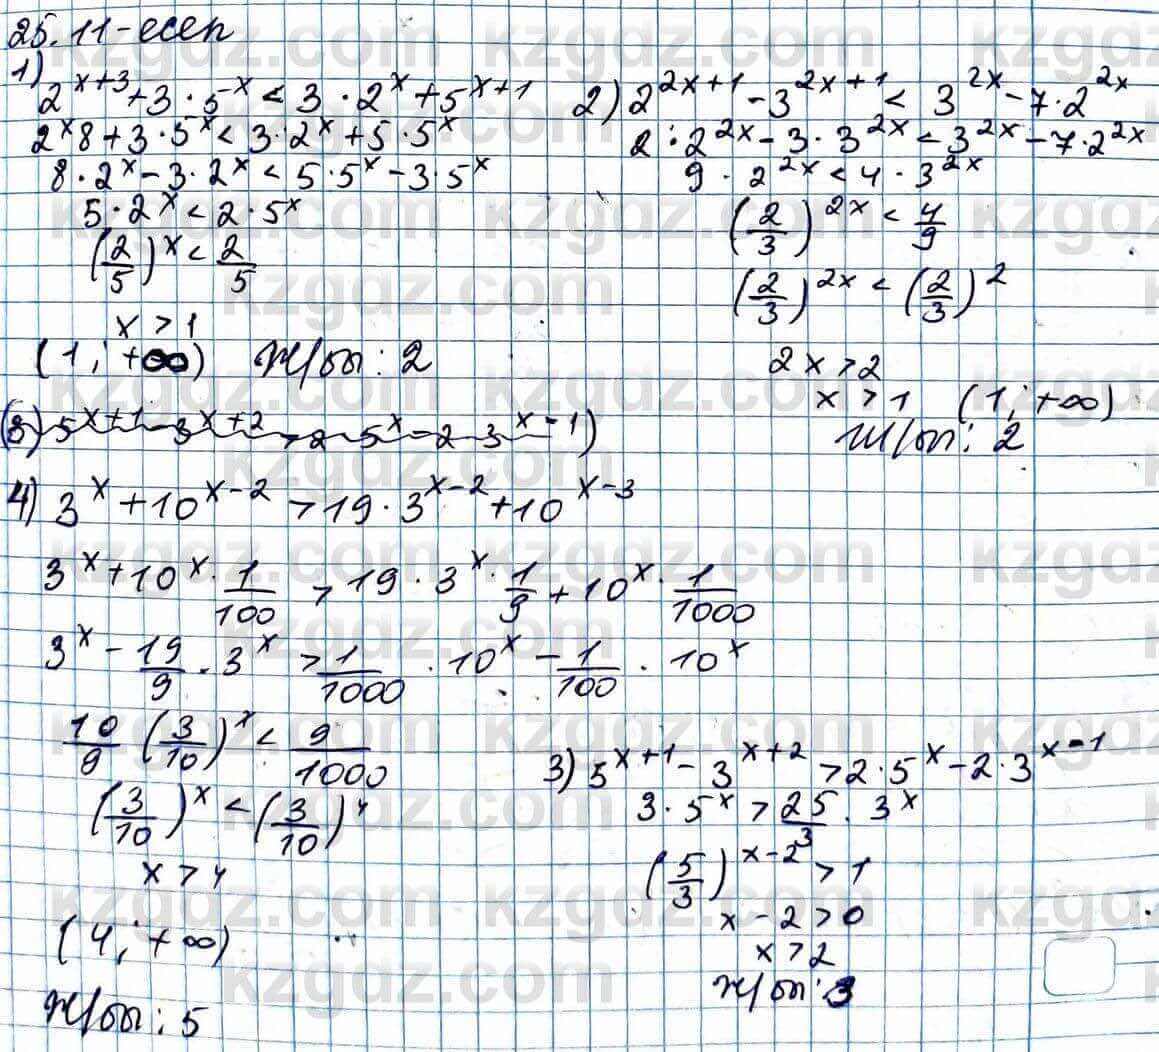 25.11-есеп
1)
2^{x+3}+3·5^x<3·2^x+5^{x+1}
2^x8+3·5^x<3·2^x+5·5^x
8·2^x-3·2^x<5·5^x-3·5^x
5·2^x<2·5^x
(2/5)^x<2/5
x>1
(1;+∞) Ж/бы: 2
2) 2^{2x+1}-3^{2x+1}<3^{2x}-7·2^{2x}
2·2^{2x}-3·3^{2x}<3^{2x}-7·2^{2x}
9·2^{2x}<4·3^{2x}
(2/3)^{2x}<4/9
(2/3)^{2x}<(2/3)^2
2x>2
x>1 (1;+∞)
Ж/бы: 2
(3) 5^{x+1}-3^{x+2}>2·5^x-2·3^{x-1})
4) 3^x+10^{x-2}>19·3^{x-2}+10^{x-3}
3^x+10^x·1/100>19·3^x·1/9+10^x·1/1000
3^x-19/9·3^x>1/1000·10^x-1/100·10^x
10/9(3/10)^x<9/1000
(3/10)^x<(3/10)^4
x>4
(4;+∞)
Ж/бы: 5
3) 5^{x+1}-3^{x+2}>2·5^x-2·3^{x-1}
3·5^x>25/3·3^x
(5/3)^{x-2}>1
x-2>0
x>2
Ж/бы: 3
kzgdz.com